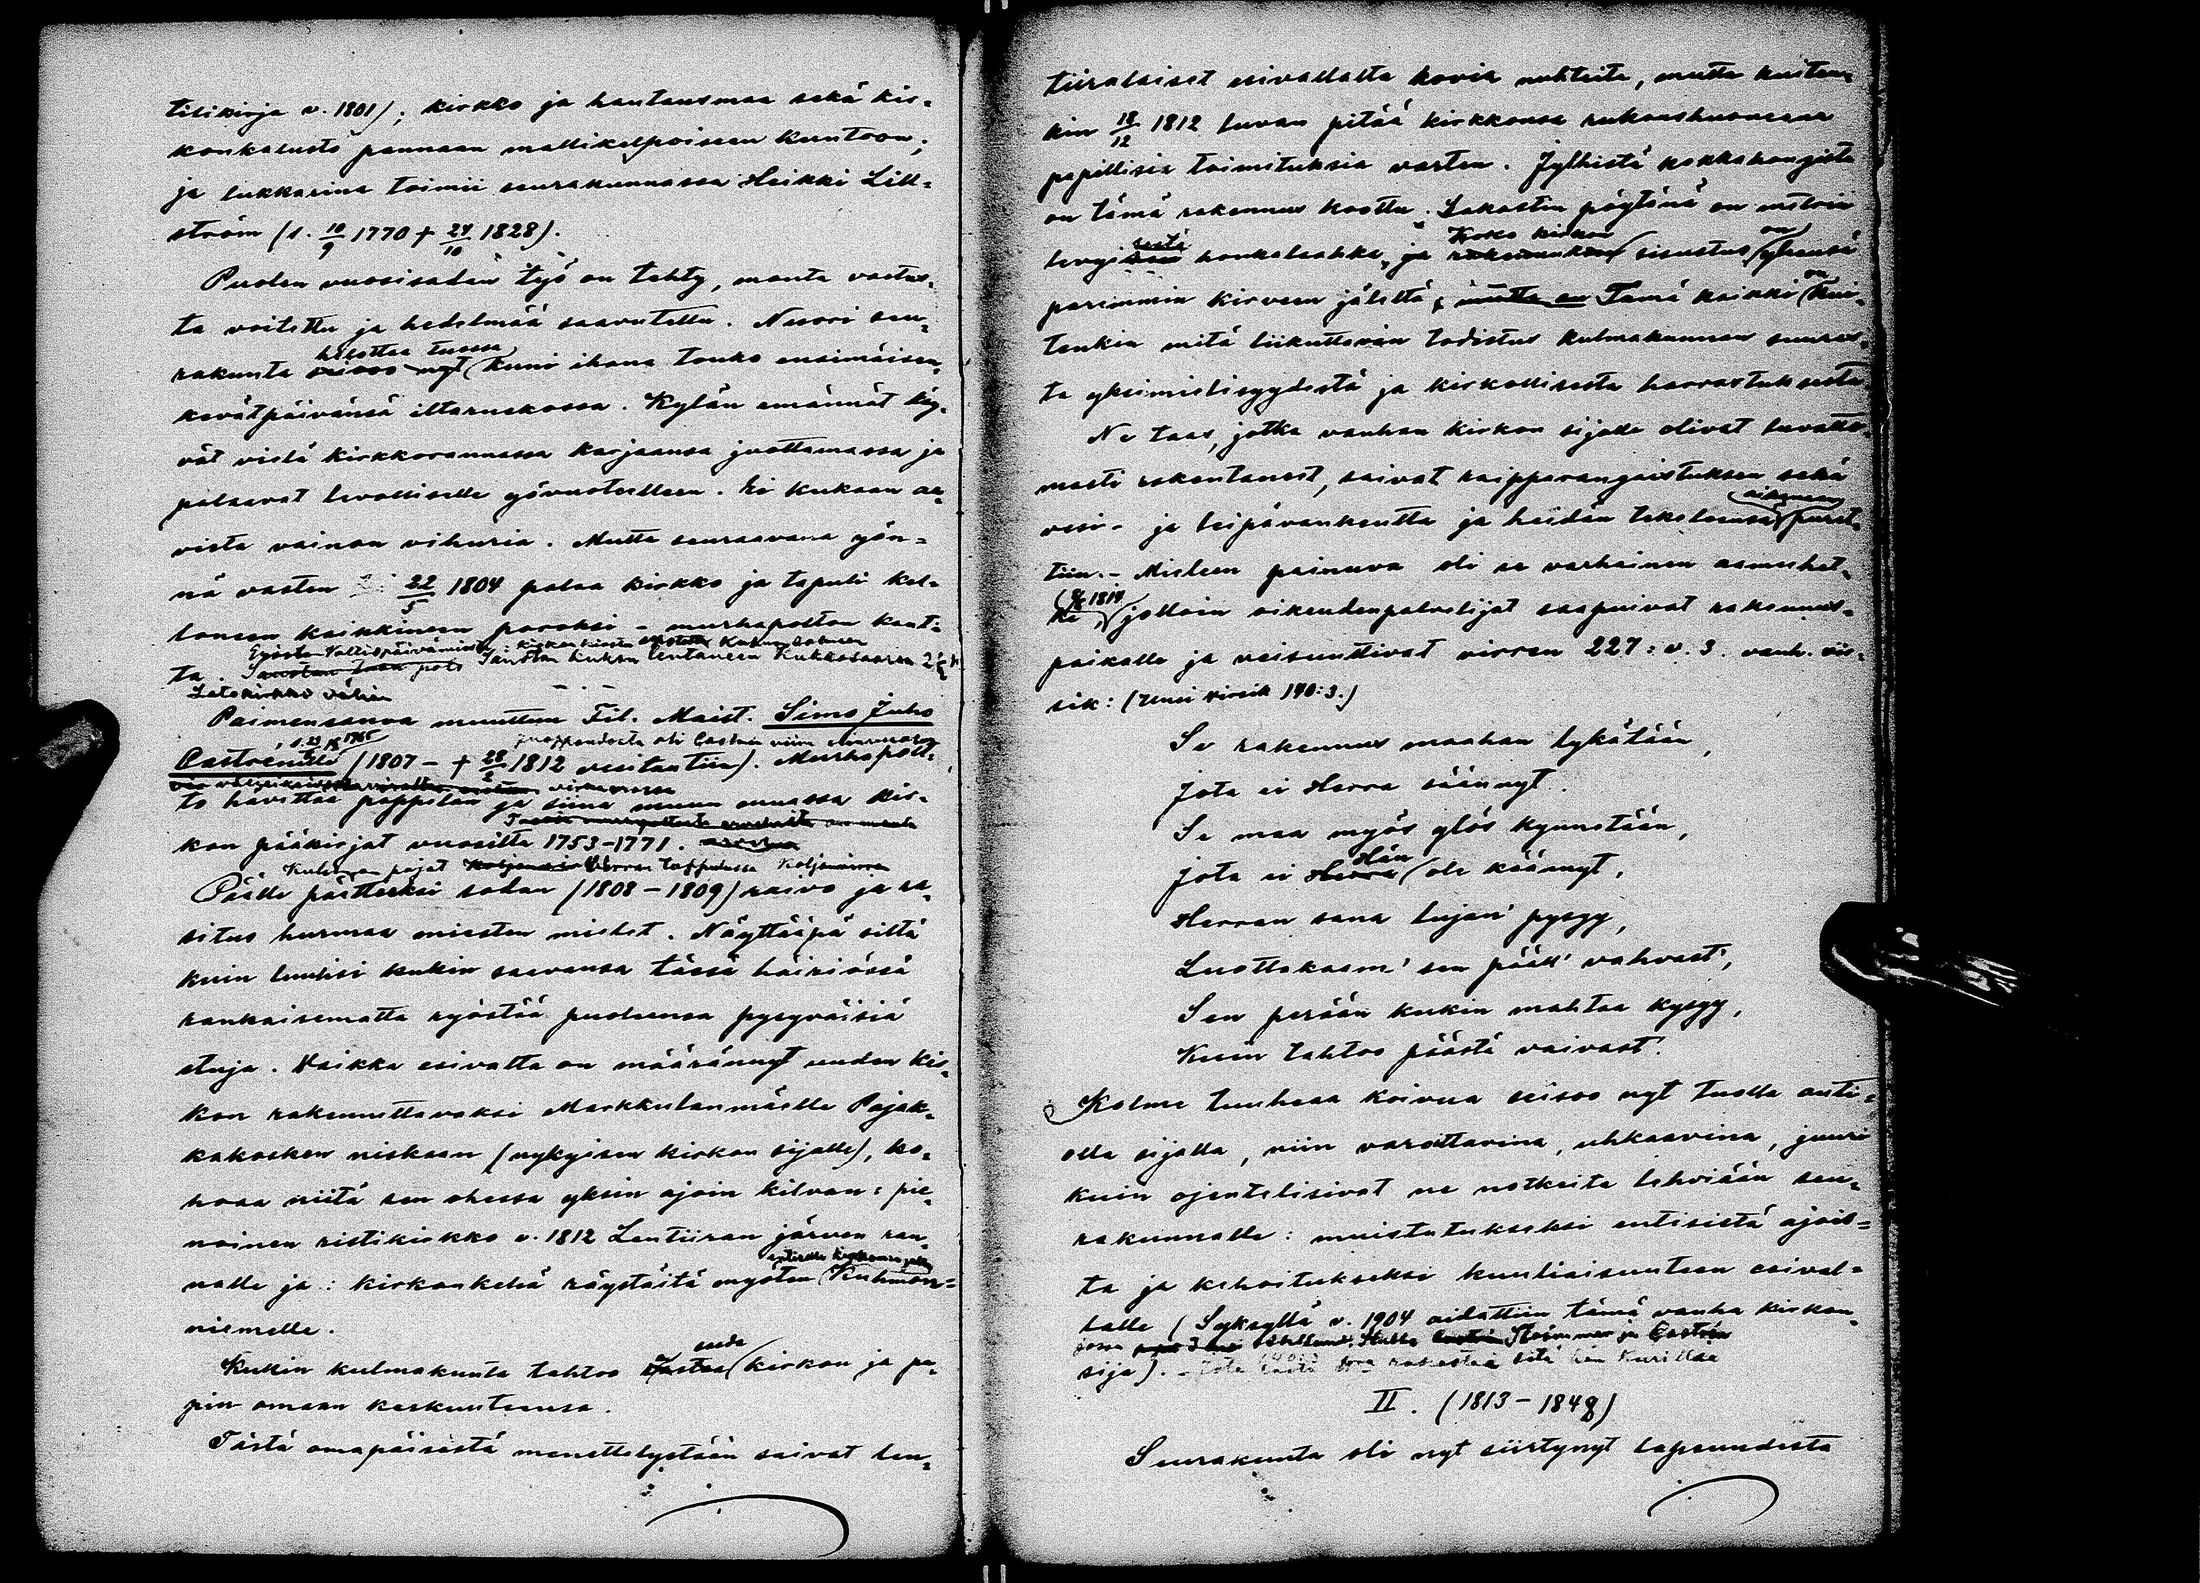 tilikirja v. 1801); kirkko ja hautausmaa sekä kir-
konkalusto pannaan mallikelpoiseen kuntoon;
ja lukkarina toimii seurakunnassa Heikki Lill-
ström (s. 10/9 1770 † 24/10 1828).
Puolen vuosisadan työ on tehty, monta vastus-
ta voitettu ja hedelmää saavutettu. Nuori seu-
hehottaa tuossa
rakunta seisoo nyt kuni ihana touko ensimäisen
kevätpäivänsä iltaruskossa. Kylän emännät käy-
vät vielä kirkkorannassa karjaansa juottamassa ja
palaavat levolliselle yövuoteelleen. Ei kukaan aa-
vista vainon vihuria. Mutta seuraavana yön-
nä vasten 22/5 1804 palaa kirkko ja tapuli kel-
loneen kaikkineen poroksi – murhapolton kaut-
ta.
Latokirkko väliin
Paimensauva muuttuu Fil. Maist. Simo Juho
Castrenille (1807 – † 28/2 1812 vesitautiin). Murhapolt-
to hävittää pappilan ja siinä muun muassa kir-
kon pääkirjat vuosilta 1753–1771.
Päälle päätteeksi sodan (1808–1809) raivo ja ra-
situs hurmaa miesten mielet. Näyttääpä siltä
kuin luulisi kukin saavansa tässä häiriössä
rankaisematta ryöstää puolensa pysyväisiä
etuja. Vaikka esivalta on määrännyt uuden kir-
kon rakennettavaksi Markkulanmäelle Pajak-
kakosken niskaan (nykyisen kirkon sijalle), ko-
hoaa niitä sen ohessa yksin ajoin kilvan: pie-
noinen ristikirkko v. 1812 Lentiiran järven ran-
nalle ja: kirkonkehä räystäitä myöten Kuhmon-
niemelle.
uuden
Kukin kulmakunta tahtoo kirkon ja pa-
pin omaan keskuuteensa.
Tästä omapäisestä menettelystään saivat len-
tiiralaiset esivallalta kovia nuhteita, mutta kuiten-
kin 18/12 1812 luvan pitää kirkkonsa rukoushuoneena
papillisia toimituksia varten. Jylhistä kokkahongista
on tämä rakennus koottu. Sakastin pöytänä on metrin
Koko kirkon on
levyisestä honkalahka, ja rakennuksen sisustus yleensä
on
parimmin kirveen jäleltä, mutta on Tämä kaikki kui-
tenkin mitä liikuttavin todistus kulmakunnan suures-
ta yksimielisyydestä ja kirkollisesta harrastuksesta.
Ne taas, jotka vanhan kirkon sijalle olivat luvatto-
masti rakentaneet, saivat raipparangaistuksen sekä
vesi- ja leipävankeutta ja heidän tekeleensä puret-
tiin. – Mieleen painuva oli se varhainen aamuhet-
ki, jolloin oikeudenpalvelijat saapuivat rakennus-
paikalle ja veisuuttivat virren 227: v. 3. vanh. vir-
sik: (Uusi virsik 140:3.)
Se rakennus maahan lykätään,
Jota ei Herra säännyt.
Se maa myös ylös kynnetään,
Hän
Jota ei Herra ole käännyt,
Herran sana lujan' pysyy,
Luottakaam' sen pääll' vahvast',
Sen perään kukin mahtaa kysyy,
Kuin tahtoo päästä vaivast'.
Kolme tuuheaa koivua seisoo nyt tuolla auti-
olla sijalla, niin varoittavina, uhkaavina, juuri
kuin ojentelisivat ne notkeita lehviään seu-
rakunnalle: muistutukseksi entisistä ajois-
ta ja kehoitukseksi kuuliaisuuteen esival-
lalle (Syksyllä v. 1904 aidattiin tämä vanha kirkon
sija).
II. (1813–1848)
Seurakunta oli nyt siirtynyt lapsuudesta